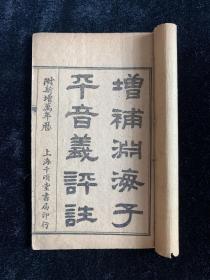 增補淵海子
平音義評註
附新增萬年曆
上海千頃堂書局印行